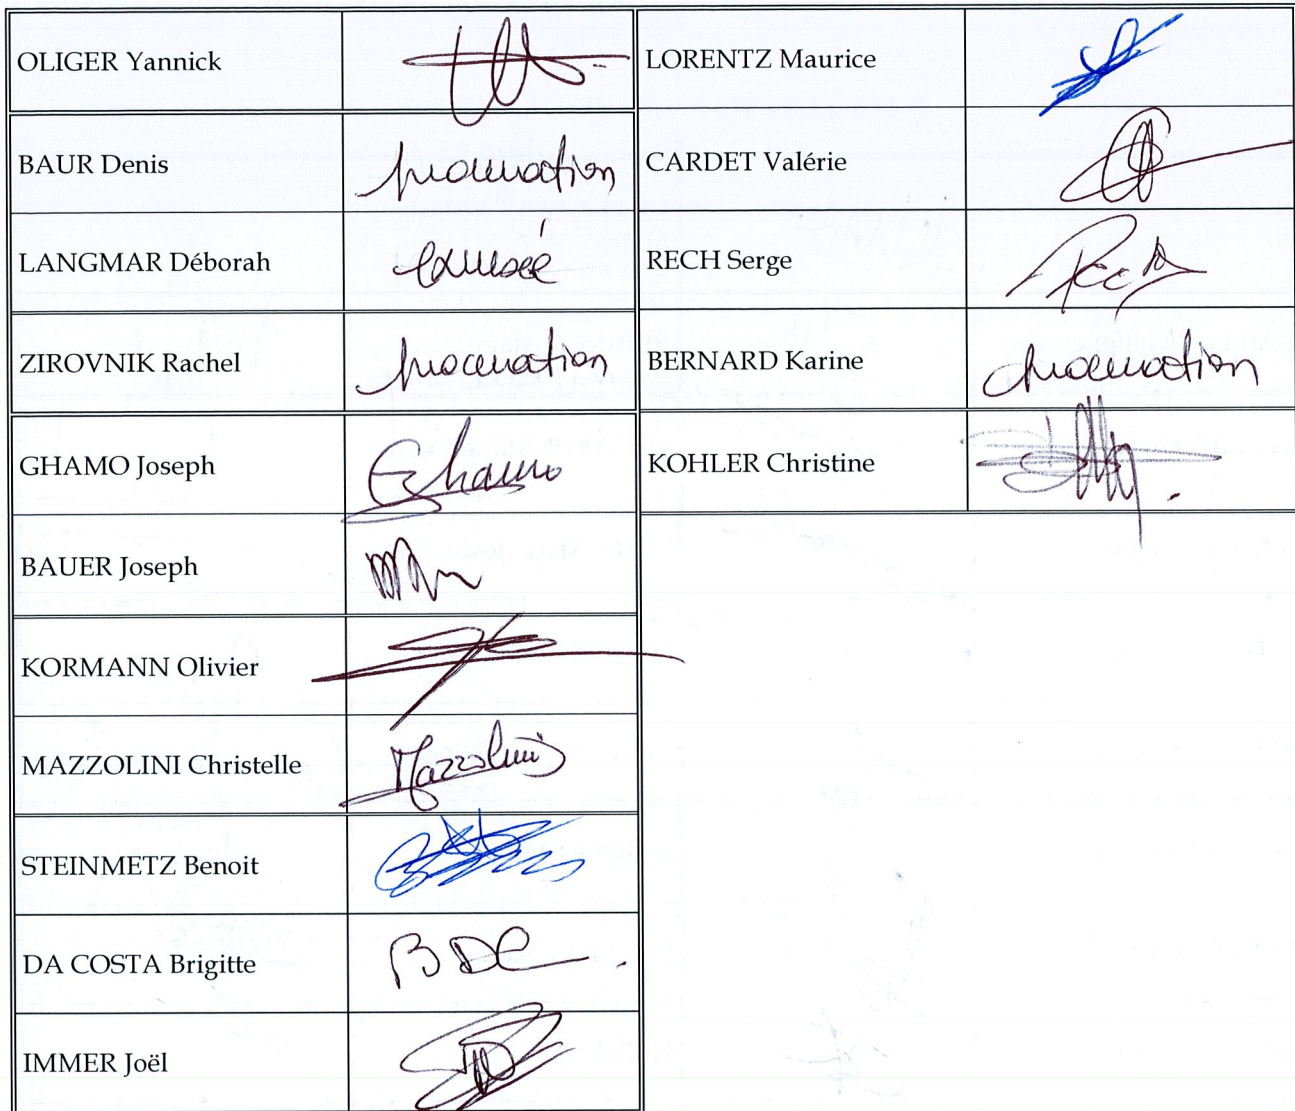 OLIGER Yannick
BAUR Denis procuration
LANGMAR Déborah excusée
ZIROVNIK Rachel procuration
GHAMO Joseph Ghamo
BAUER Joseph
KORMANN Olivier
MAZZOLINI Christelle Mazzolini
STEINMETZ Benoit
DA COSTA Brigitte BDC
IMMER Joël
LORENTZ Maurice
CARDET Valérie
RECH Serge
BERNARD Karine procuration
KOHLER Christine